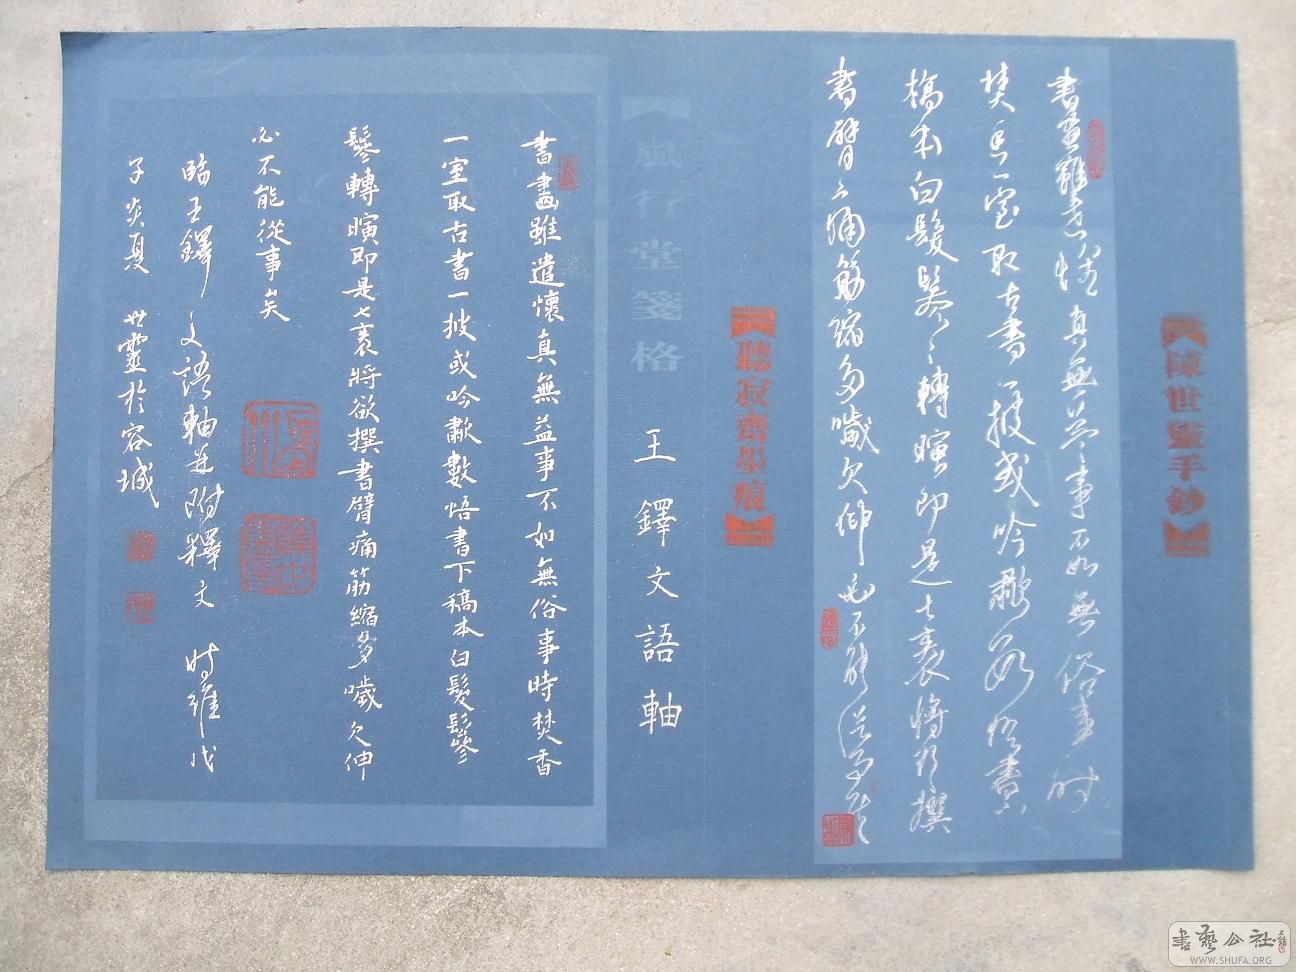 陳世靈手鈔
書畫雖遣懷真無益事不如無俗事時
焚香一室取古書一披或吟歗數悟書下
稿本白髮鬖鬖轉瞚即是七袠將欲撰
書臂痛筋縮多噦欠伸必不能從事矣
聽寂齋墨痕
王鐸文語軸
風行堂箋格
書畫雖遣懷真無益事不如無俗事時焚香
一室取古書一披或吟歗數悟書下稿本白髮鬖
鬖轉瞚即是七袠將欲撰書臂痛筋縮多噦欠伸
必不能從事矣
臨王鐸文語軸並附釋文 時維戊
子炎夏 世靈於容城
書藝公社
WWW.SHUFA.ORG